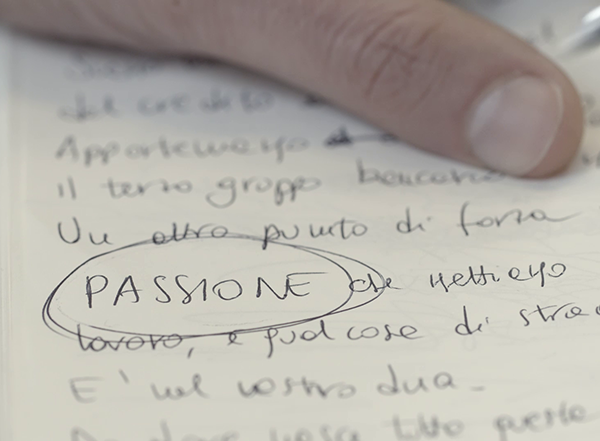 del credito
Apparteniamo
Il terzo gruppo bancario
Un altro punto di forza
PASSIONE che mettiamo
lavoro, è qualcosa di
E' nel nostro dna.
tutto questo